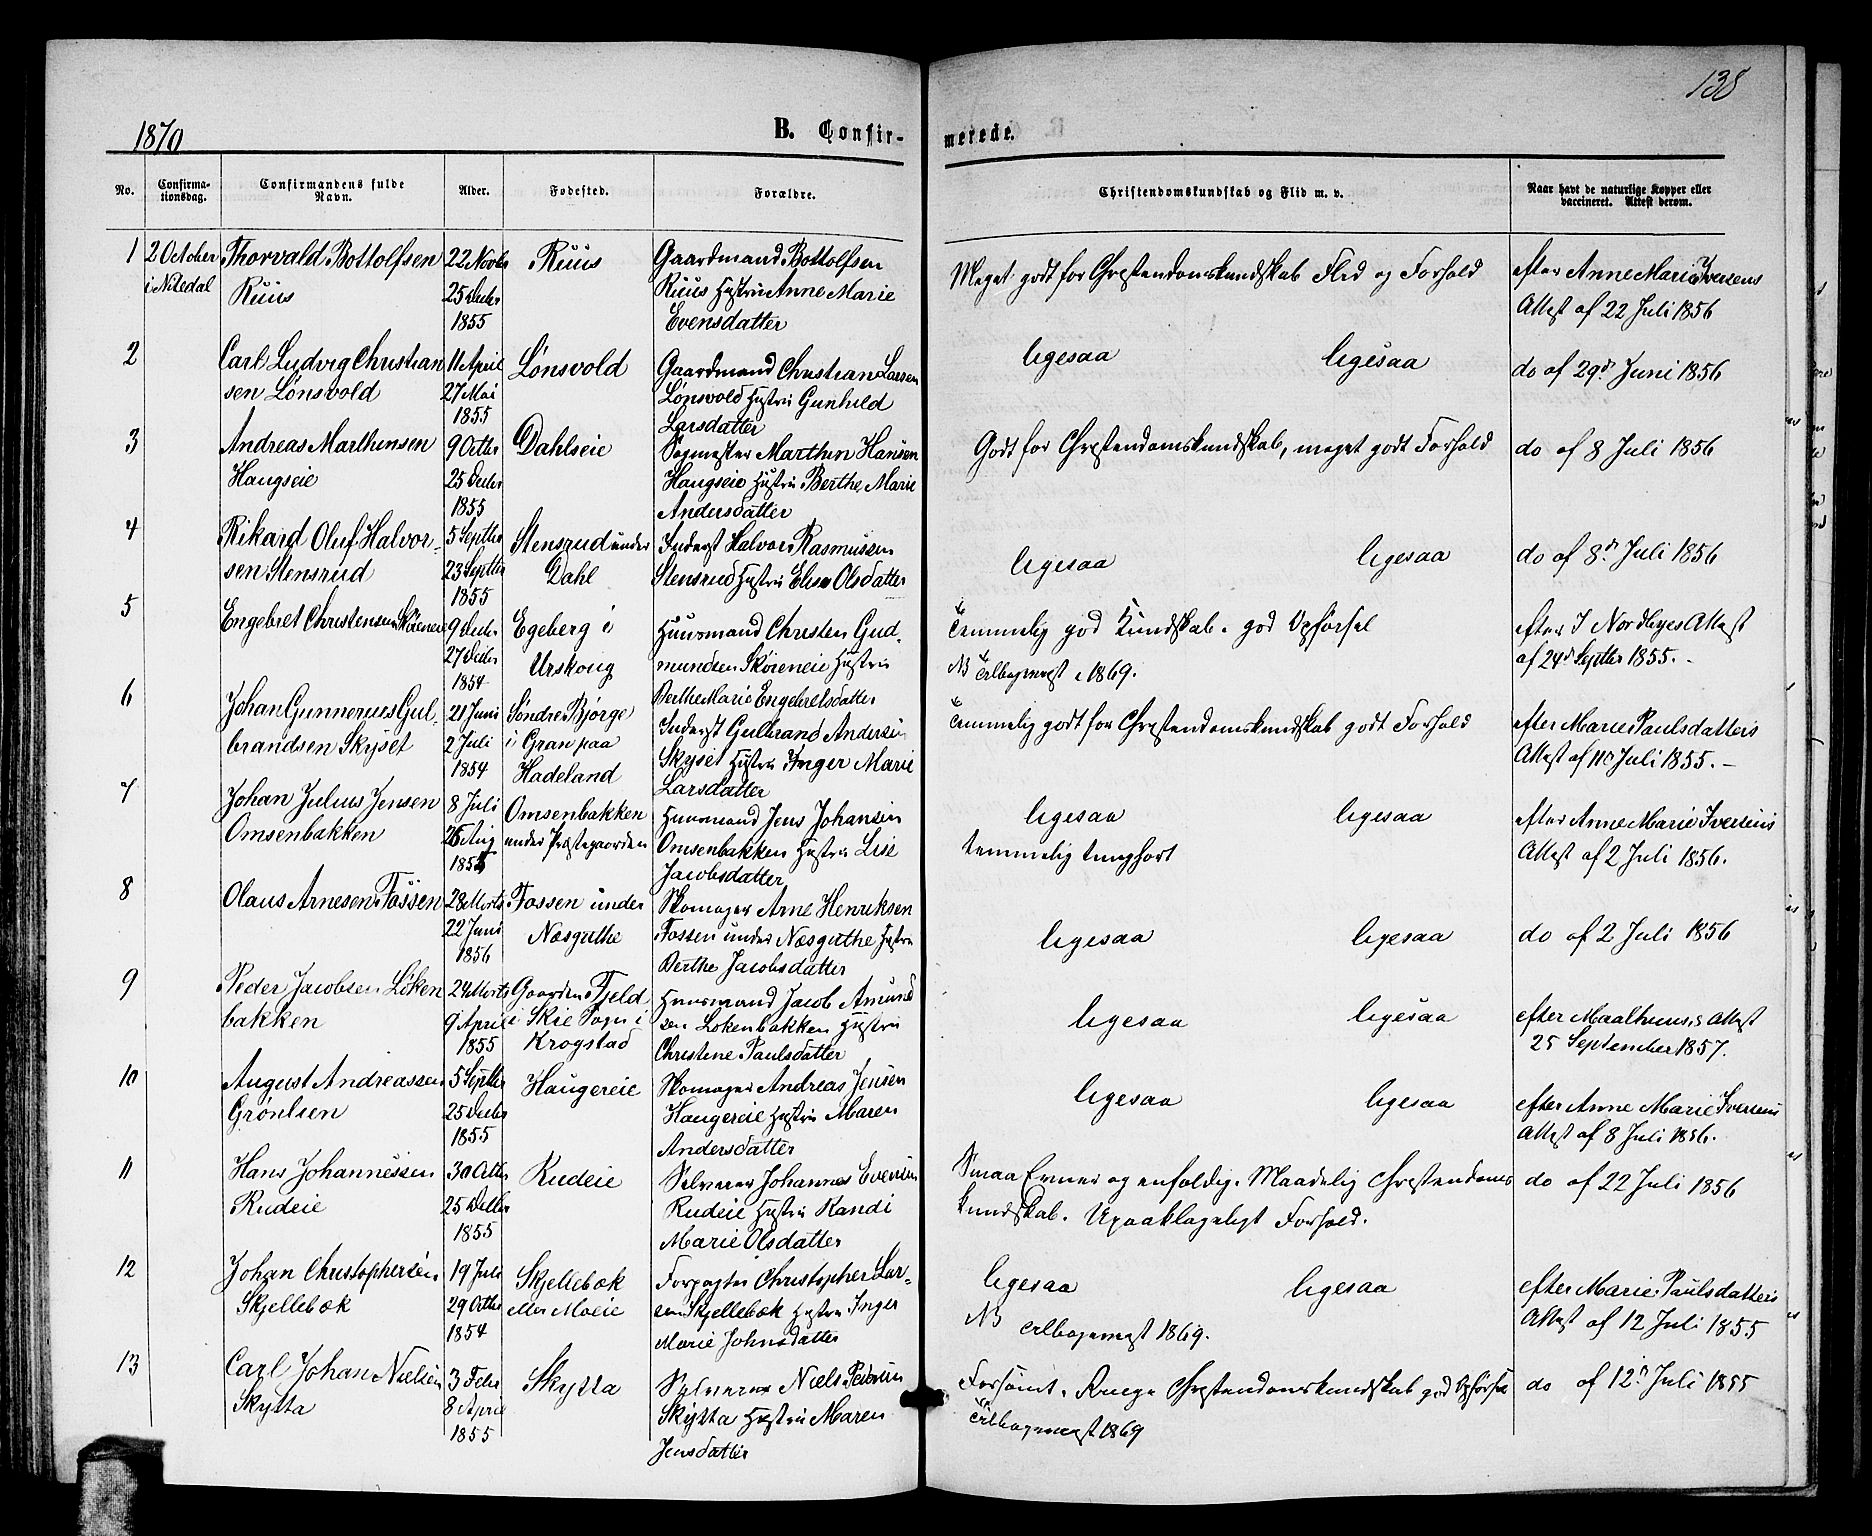 138
1870
B. Confir-
merede.
No.
Confirma-
tionsdag.
Confirmandens fulde
Navn.
Alder.
Fødested.
Forældre.
Christendomskundskab og Flid m. v.
Naar havt de naturlige Kopper eller
vaccineret. Attest derom.
1 2 October Thorvald Bottolfsen 22 Novbr Ruus Gaardmand Bottolfsen
i Nitedal Ruus 25 Decbr Ruus Hustru Anne Marie
1855 Evensdatter
Meget godt for Christendomskundskab Flid og Forhold
efter Anne Marie Iversens
Attest af 22 Juli 1856
2 Carl Ludvig Christian 11 April Lønsvold Gaardmand Christian Larsen
sen Lønsvold 27 Mai Lønsvold Hustru Gunhild
1855 Larsdatter
ligesaa ligesaa do af 29d Juni 1856
3 Andreas Marthinsen 9 Octbr Dahlseie Sagmester Marthin Hansen
Haugseie 25 Decbr Haugseie Hustru Berthe Marie
1855 Andersdatter
Godt for Christendomskundskab, meget godt Forhold do af 8 Juli 1856
4 Rikard Oluf Halvor- 5 Septbr Stensrud under Inderst Halvor Rasmussen
sen Stensrud 23 Septbr Dahl Stensrud Hustru Elise Olsdatter
1855
ligesaa ligesaa do af 8d Juli 1856
5 Engebret Christensen Skøieneie 9 Decbr Egeberg i Huusmand Christen Gud-
27 Decbr Urskoug mundsen Skøieneie Hustru
1854 Berthe Marie Engebretsdatter
Temmelig god Kundskab. god Opførsel
NB tilbagevist i 1869.
efter I Nordbyes Attest
af 24d Septbr 1855.
6 Johan Gunnerius Gul- 21 Juni Søndre Bjørge Inderst Gulbrand Andersen
brandsen Skyset 2 Juli i Gran paa Skyset Hustru Inger Marie
1854 Hadeland Larsdatter
Temmelig godt for Christendomskundskab godt Forhold
efter Marie Paulsdatters
Attest af 11te Juli 1855.
7 Johan Julius Jensen 8 Juli Omsenbakken Huusmand Jens Johansen
Omsenbakken 26 Aug under Præstegaarden Omsenbakken Hustru Lise
1855 Jacobsdatter
ligesaa ligesaa
temmelig tungført
efter Anne Marie Iversens
Attest af 2 Juli 1856.
8 Olaus Arnesen Fossen 28 Marts Fossen under Skomager Arne Henriksen
22 Juni Næsguthe Fossen under Næsguthe Hustru
1856 Berthe Jacobsdatter
ligesaa ligesaa do af 2 Juli 1856
9 Peder Jacobsen Løken 24 Marts Gaarden Fjeld Huusmand Jacob Amund
bakken 9 April i Skie Sogn i sen Løkenbakken Hustru
1855 Krogstad Christine Paulsdatter
ligesaa ligesaa
efter Maalhuus Attest
25 September 1857.
10 August Andreassen 5 Septbr Haugereie Skomager Andreas Jensen
Grønlsen 25 Decbr Haugereie Hustru Maren
1855 Andersdatter
ligesaa ligesaa
efter Anne Marie Iversens
Attest af 8 Juli 1856.
11 Hans Johannessen 30 Octbr Rudeie Selveier Johannes Evensen
Rudeie 25 Decbr Rudeie Hustru Randi
1855 Marie Olsdatter
Smaa Evner og enfoldig. Maadelig Christendoms
kundskab. Upaaklageligt Forhold.
do af 22 Juli 1856
12 Johan Christophersen 19 Juli Skjellebæk Forpagter Christopher Lar-
Skjellebæk 29 Octbr eller Moeie sen Skjellebæk Hustru Inger
1854 Marie Johnsdatter
ligesaa ligesaa
NB tilbagevist 1869.
efter Marie Paulsdatters
Attest af 12 Juli 1855
13 Carl Johan Nielsen 3 Febr Skytta Selveier Niels Pedersen
Skytta 8 April Skytta Hustru Maren
1855 Jensdatter
Forsømt. Ringe Christendomskundskab god Opførsel
tilbagevist 1869
do af 12d Juli 1855